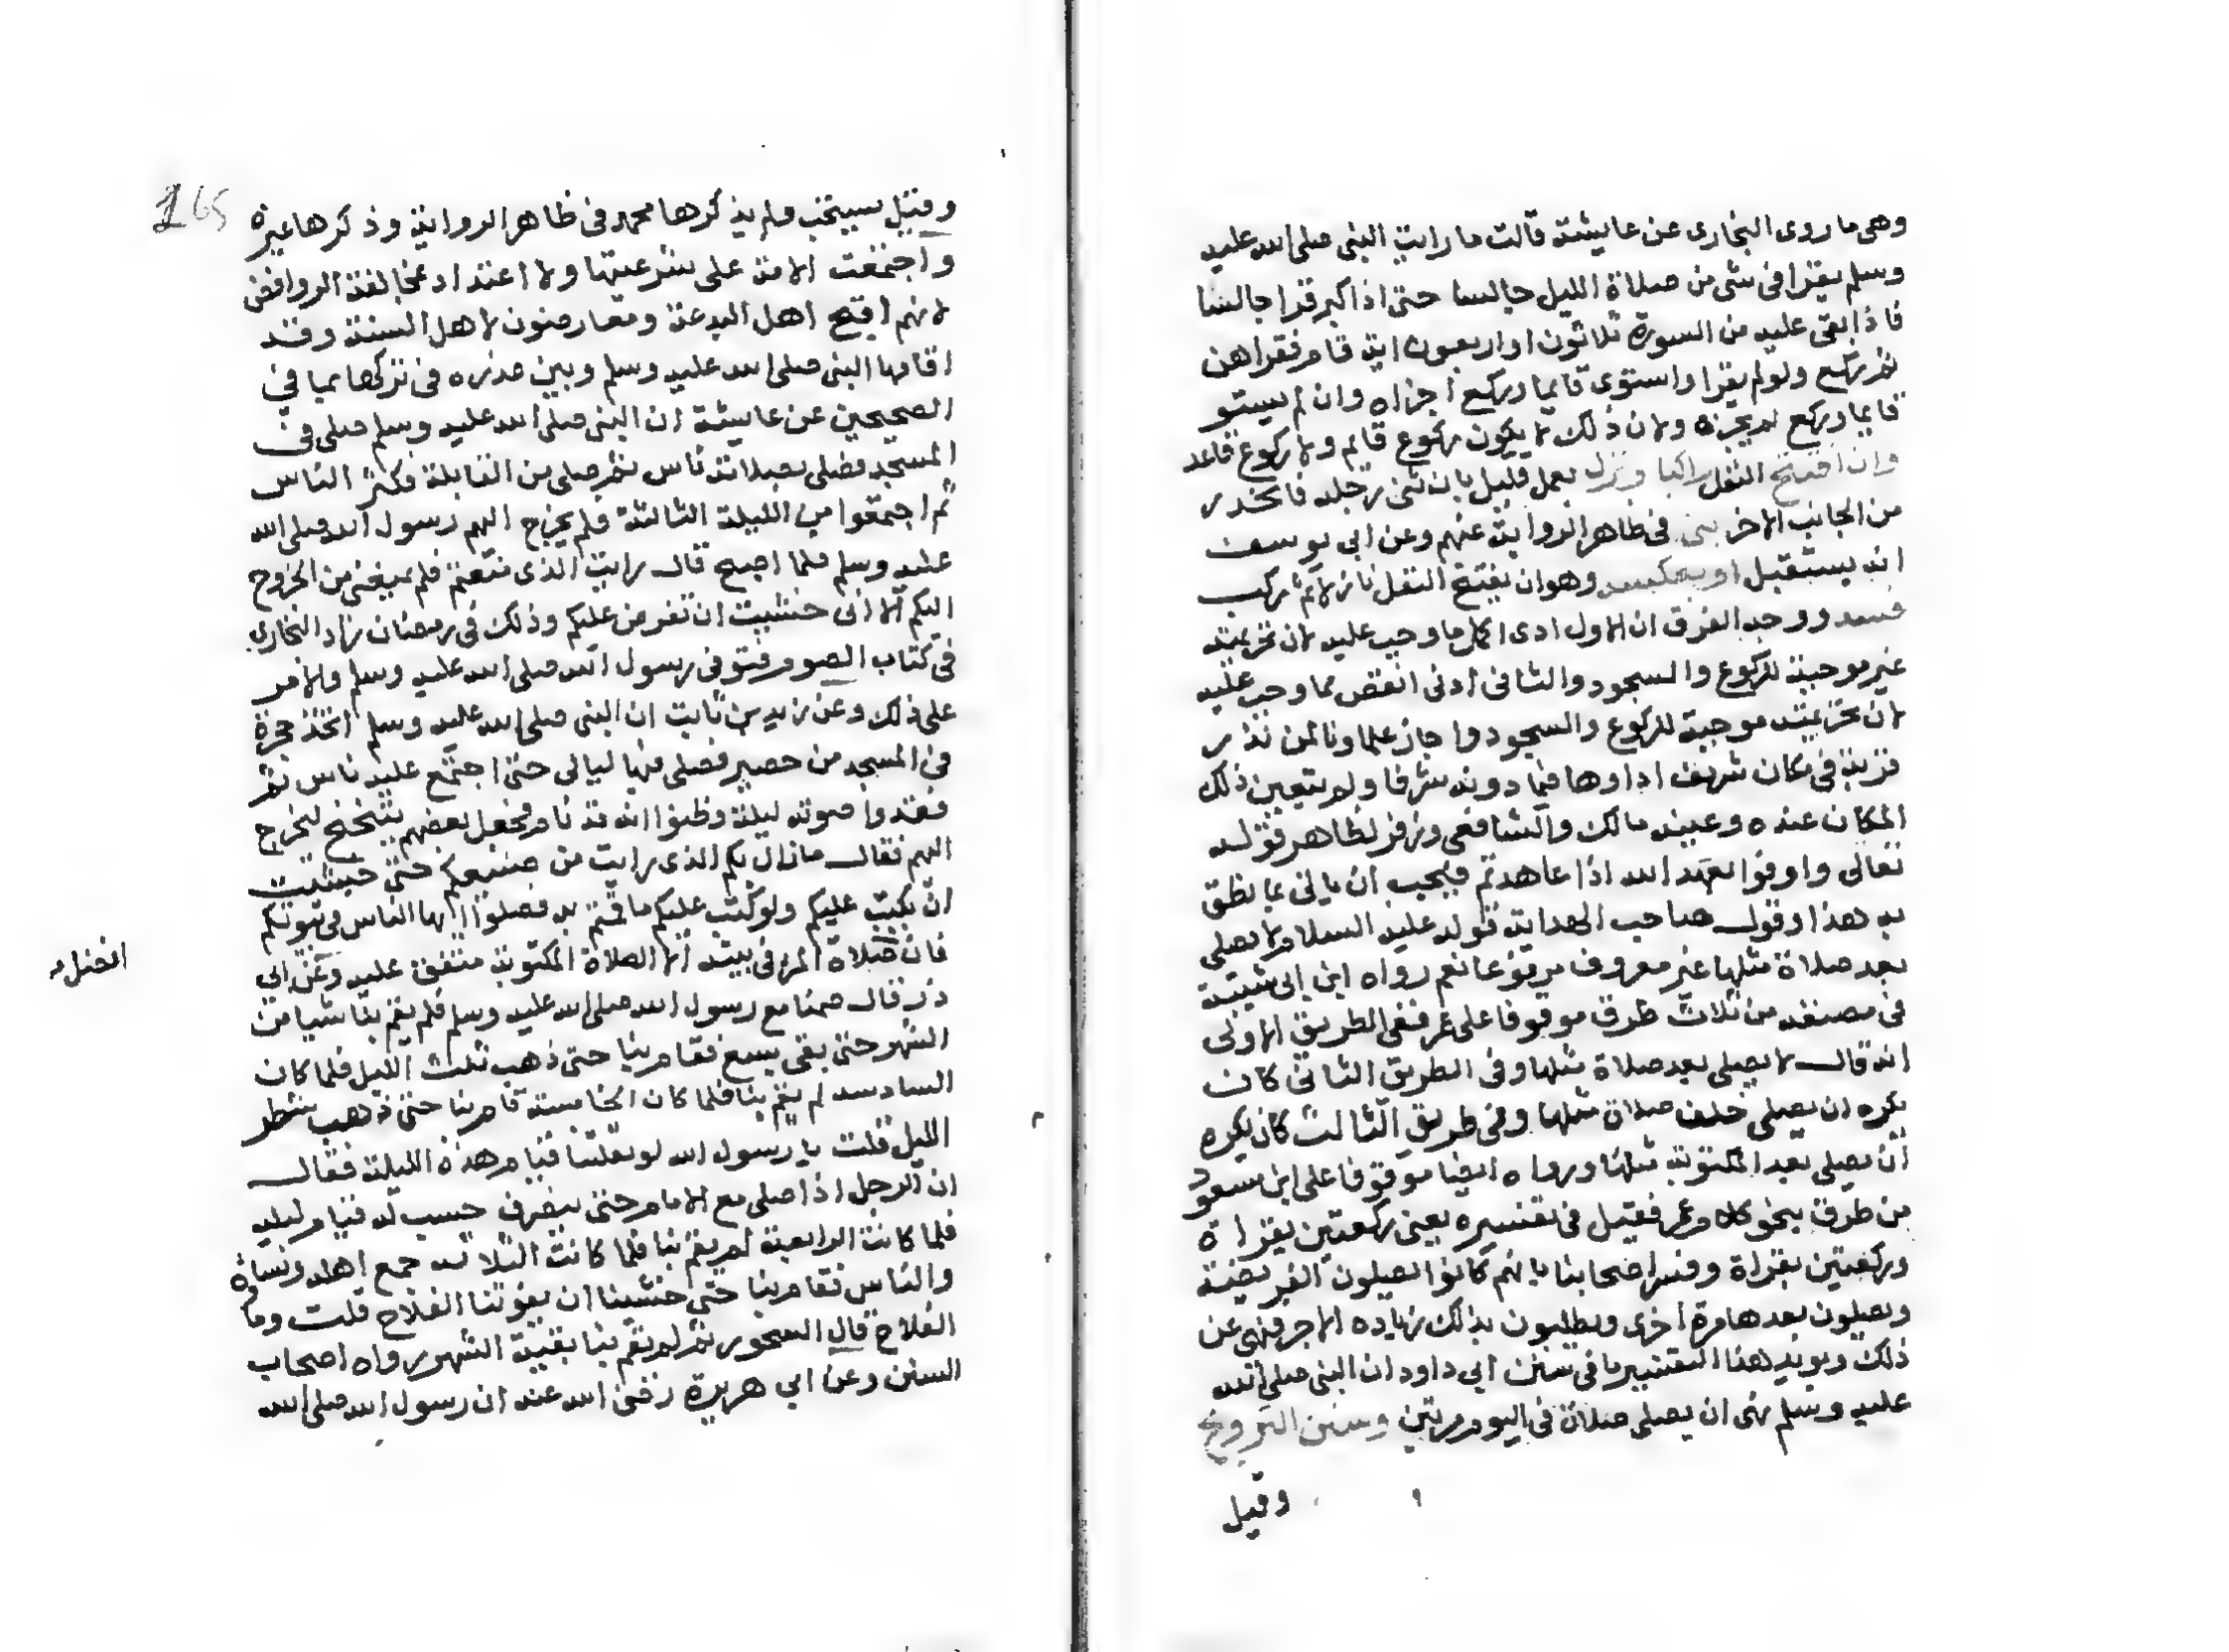 وهى ما روى البخارى عن عايشة قالت ما رايت النبى صلى الله عليه
وسلم يقرا فى شى من صلاة الليل جالسا حتى اذا كبر قرا جالسا
فاذا بقى عليه من السورة ثلاثون او اربعون اية قام فقراهن
ثم ركع ولو لم يقرا واستوى قايما وركع اجزاه وان لم يستو
قايما وركع لم يجزه ولان ذلك لا يكون ركوع قايم ولا ركوع قاعد
وان افتتح النفل راكبا ونزل بعمل قليل بان ثنى رجله فانحدر
من الجانب الاخر بنى فى ظاهر الرواية عنهم وعن ابى يوسف
انه يستقبل او بعكسه وهو ان يفتتح النفل نازلا ثم ركب
فسد ووجه الفرق ان الاول ادى اكمل ما وجب عليه لان تحريمته
غير موجبة للركوع والسجود والثانى ادنى انقص مما وجب عليه
لان تحريمته موجبة للركوع والسجود واجاز علماونا لمن نذر
قربة فى مكان شريف اداوها فيما دونه شرفا ولم يتعين ذلك
المكان عنده وعينه مالك والشافعى وزفر لظاهر قوله
تعالى واوفوا بعهد الله اذا عاهدتم فيجب ان ياتى بما نطق
به هذا وقول صاحب الهداية قوله عليه السلام لا يصلى
بعد صلاة مثلها غير معروف مرفوعا نعم رواه ابن ابى شيبة
فى مصنفه من ثلاث طرق موقوفا على عمر ففى الطريق الاولى
انه قال لا يصلى بعد صلاة مثلها وفى الطريق الثانى كان
يكره ان يصلى خلف صلاة مثلها وفى طريق الثالث كان يكره
ان يصلى بعد المكتوبة مثلها ورواه ايضا موقوفا على ابن مسعود
من طرق بنحو كلام عمر فقيل فى تفسيره يعنى ركعتين بقراة
وركعتين بقراة وفسر اصحابنا بانهم كانوا يصلون الفريضة
ويصلون بعدها مرة اخرى ويطلبون بذلك زياده الاجر فنهى عن
ذلك ويويد هذا التفسير ما فى سنن ابى داود ان النبى صلى الله
عليه وسلم نهى ان يصلى صلاة فى اليوم مرتين وسنن التراويح
وقيل
165
وقيل يستحب ولم يذكرها محمد فى ظاهر الرواية وذكرها غيره
واجتمعت الامة على شرعيتها ولا اعتداد بمخالفة الروافض
لانهم اقبح اهل البدعة ومعارضون لاهل السنة وقد
اقامها النبى صلى الله عليه وسلم وبين عذره فى تركها بما فى
الصحيحين عن عايشة ان النبى صلى الله عليه وسلم صلى فى
المسجد فصلى بصلاته ناس ثم صلى من القابلة فكثر الناس
ثم اجتمعوا من الليلة الثالثة فلم يخرج اليهم رسول الله صلى الله
عليه وسلم فلما اصبح قال رايت الذى صنعتم فلم يمنعنى من الخروج
اليكم الا انى خشيت ان تفرض عليكم وذلك فى رمضان زاد البخارى
فى كتاب الصوم فتوفى رسول الله صلى الله عليه وسلم والامر
على ذلك وعن زيد بن ثابت ان النبى صلى الله عليه وسلم اتخذ حجرة
فى المسجد من حصير فصلى فيها ليالى حتى اجتمع عليه ناس ثم
فقدوا صوته ليلة وظنوا انه قد نام فجعل بعضهم يتنحنح ليخرج
اليهم فقال ما زال بكم الذى رايت من صنيعكم حتى خشيت
ان يكتب عليكم ولو كتب عليكم ما قمتم به فصلوا ايها الناس فى بيوتكم
فان صلاة المرء فى بيته الا الصلاة المكتوبة متفق عليه وعن ابى
ذر قال صمنا مع رسول الله صلى الله عليه وسلم فلم يقم بنا شيا من
الشهر حتى بقى سبع فقام بنا حتى ذهب ثلث الليل فلما كان
السادسه لم يقم بنا فلما كان الخامسة قام بنا حتى ذهب شطر
الليل قلت يا رسول الله لو نفلتنا قيام هذه الليلة فقال
ان الرجل اذا صلى مع الامام حتى ينصرف حسب له قيام ليله
فلما كانت الرابعة لم يقم بنا فلما كانت الثلاثه جمع اهله ونساه
والناس فقام بنا حتى خشينا ان يفوتنا الفلاح قلت وما
الفلاح قال السحور ثم لم يقم بنا بقية الشهر رواه اصحاب
السنن وعن ابى هريرة رضى الله عنه ان رسول الله صلى الله
افضل